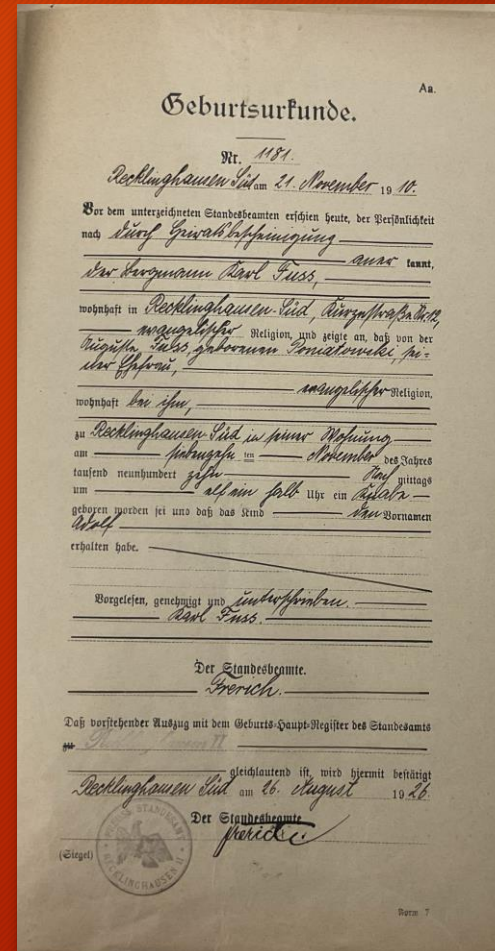 Aa.
Geburtsurkunde.
Nr. 1181.
Recklinghausen Süd am 21. November 1910.
Vor dem unterzeichneten Standesbeamten erschien heute, der Persönlichkeit
nach durch Heiratsbescheinigung
aner kannt,
der Bergmann Karl Fuss,
wohnhaft in Recklinghausen-Süd, Kurzestraße Nr. 12,
evangelischer Religion, und zeigte an, daß von der
Auguste Fuss, geborenen Poniatowski, sei-
ner Ehefrau,
evangelischer Religion,
wohnhaft bei ihm,
zu Recklinghausen-Süd in seiner Wohnung
am siebenzehn ten November des Jahres
tausend neunhundert zehn Nach mittags
um elf ein halb Uhr ein Knabe
geboren worden sei und daß das Kind den Vornamen
Adolf
erhalten habe.
Vorgelesen, genehmigt und unterschrieben.
Karl Fuss.
Der Standesbeamte.
Frerich.
Daß vorstehender Auszug mit dem Geburts-Haupt-Register des Standesamts
zu
gleichlautend ist, wird hiermit bestätigt
Recklinghausen Süd am 26. August 1926.
Der Standesbeamte
Frerich
(Siegel)
PREUSS. STANDESAMT
RECKLINGHAUSEN II
Norm 7